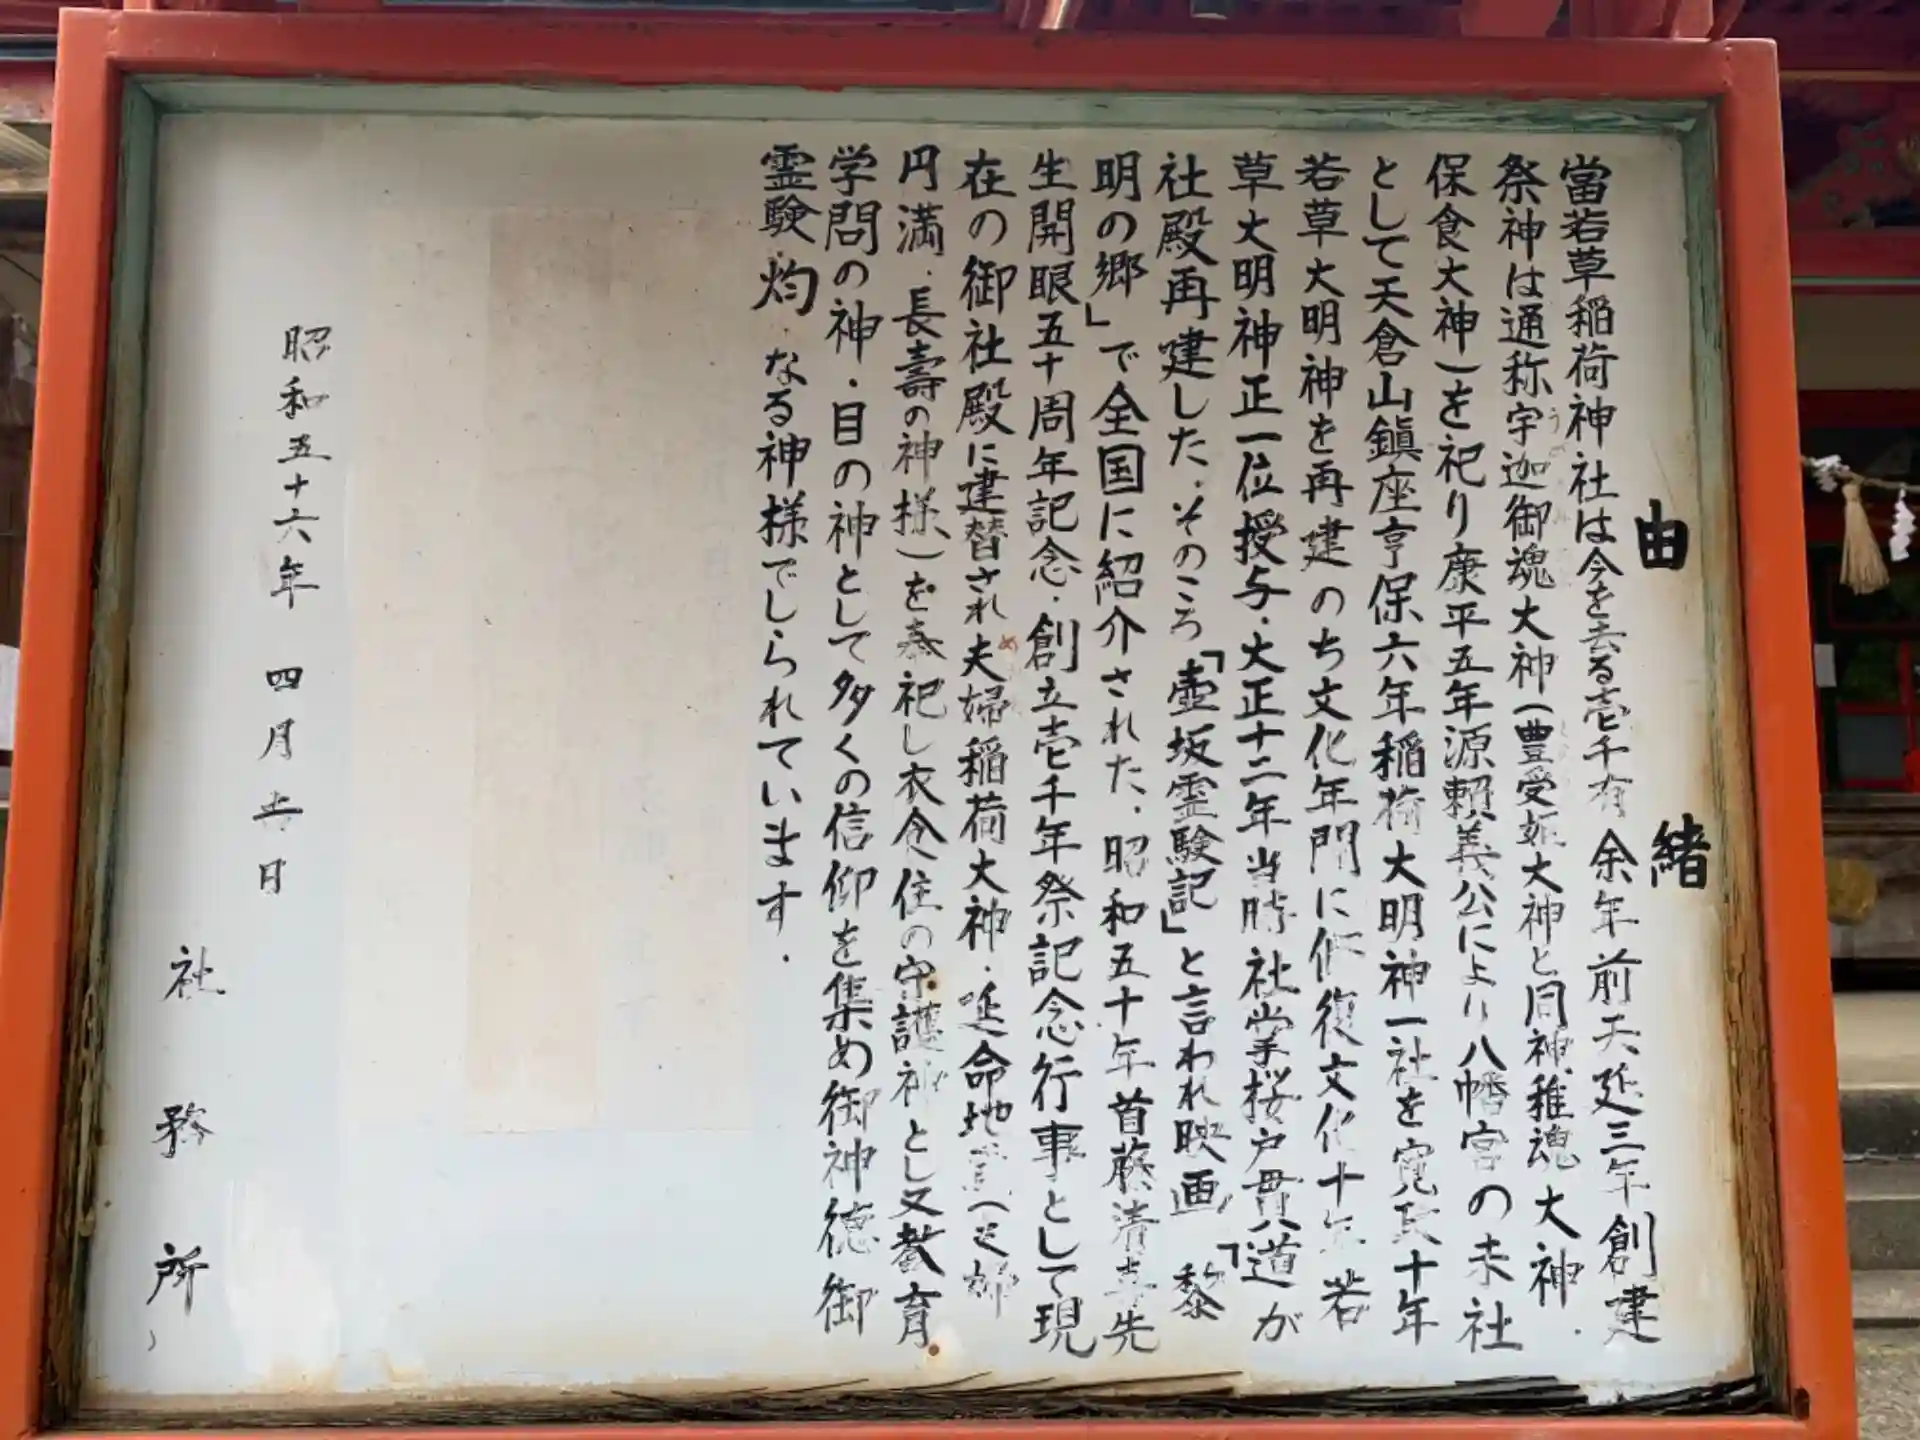 由緒
當若草稲荷神社は今を去る壱千有余年前天延三年創建
祭神は通称宇迦御魂大神(豊受姫大神と同神稚魂大神・
保食大神)を祀り康平五年源頼義公により八幡宮の末社
として天倉山鎮座亨保六年稲荷大明神一社を寛政十年
若草大明神を再建のち文化年間に修復文化十年若
草大明神正一位授与・大正十二年当時社掌桜戸貫八道が
社殿再建した、そのころ「壷坂霊験記」と言われ映画「黎
明の郷」で全国に紹介された、昭和五十年首藤清喜先
生開眼五十周年記念・創立壱千年祭記念行事として現
在の御社殿に建替され夫婦稲荷大神・延命地蔵(夫婦
円満・長壽の神様)を奉祀し衣食住の守護神とし又教育
学問の神・目の神として多くの信仰を集め御神徳御
霊験灼なる神様でしられています・
昭和五十六年 四月 日
社務所